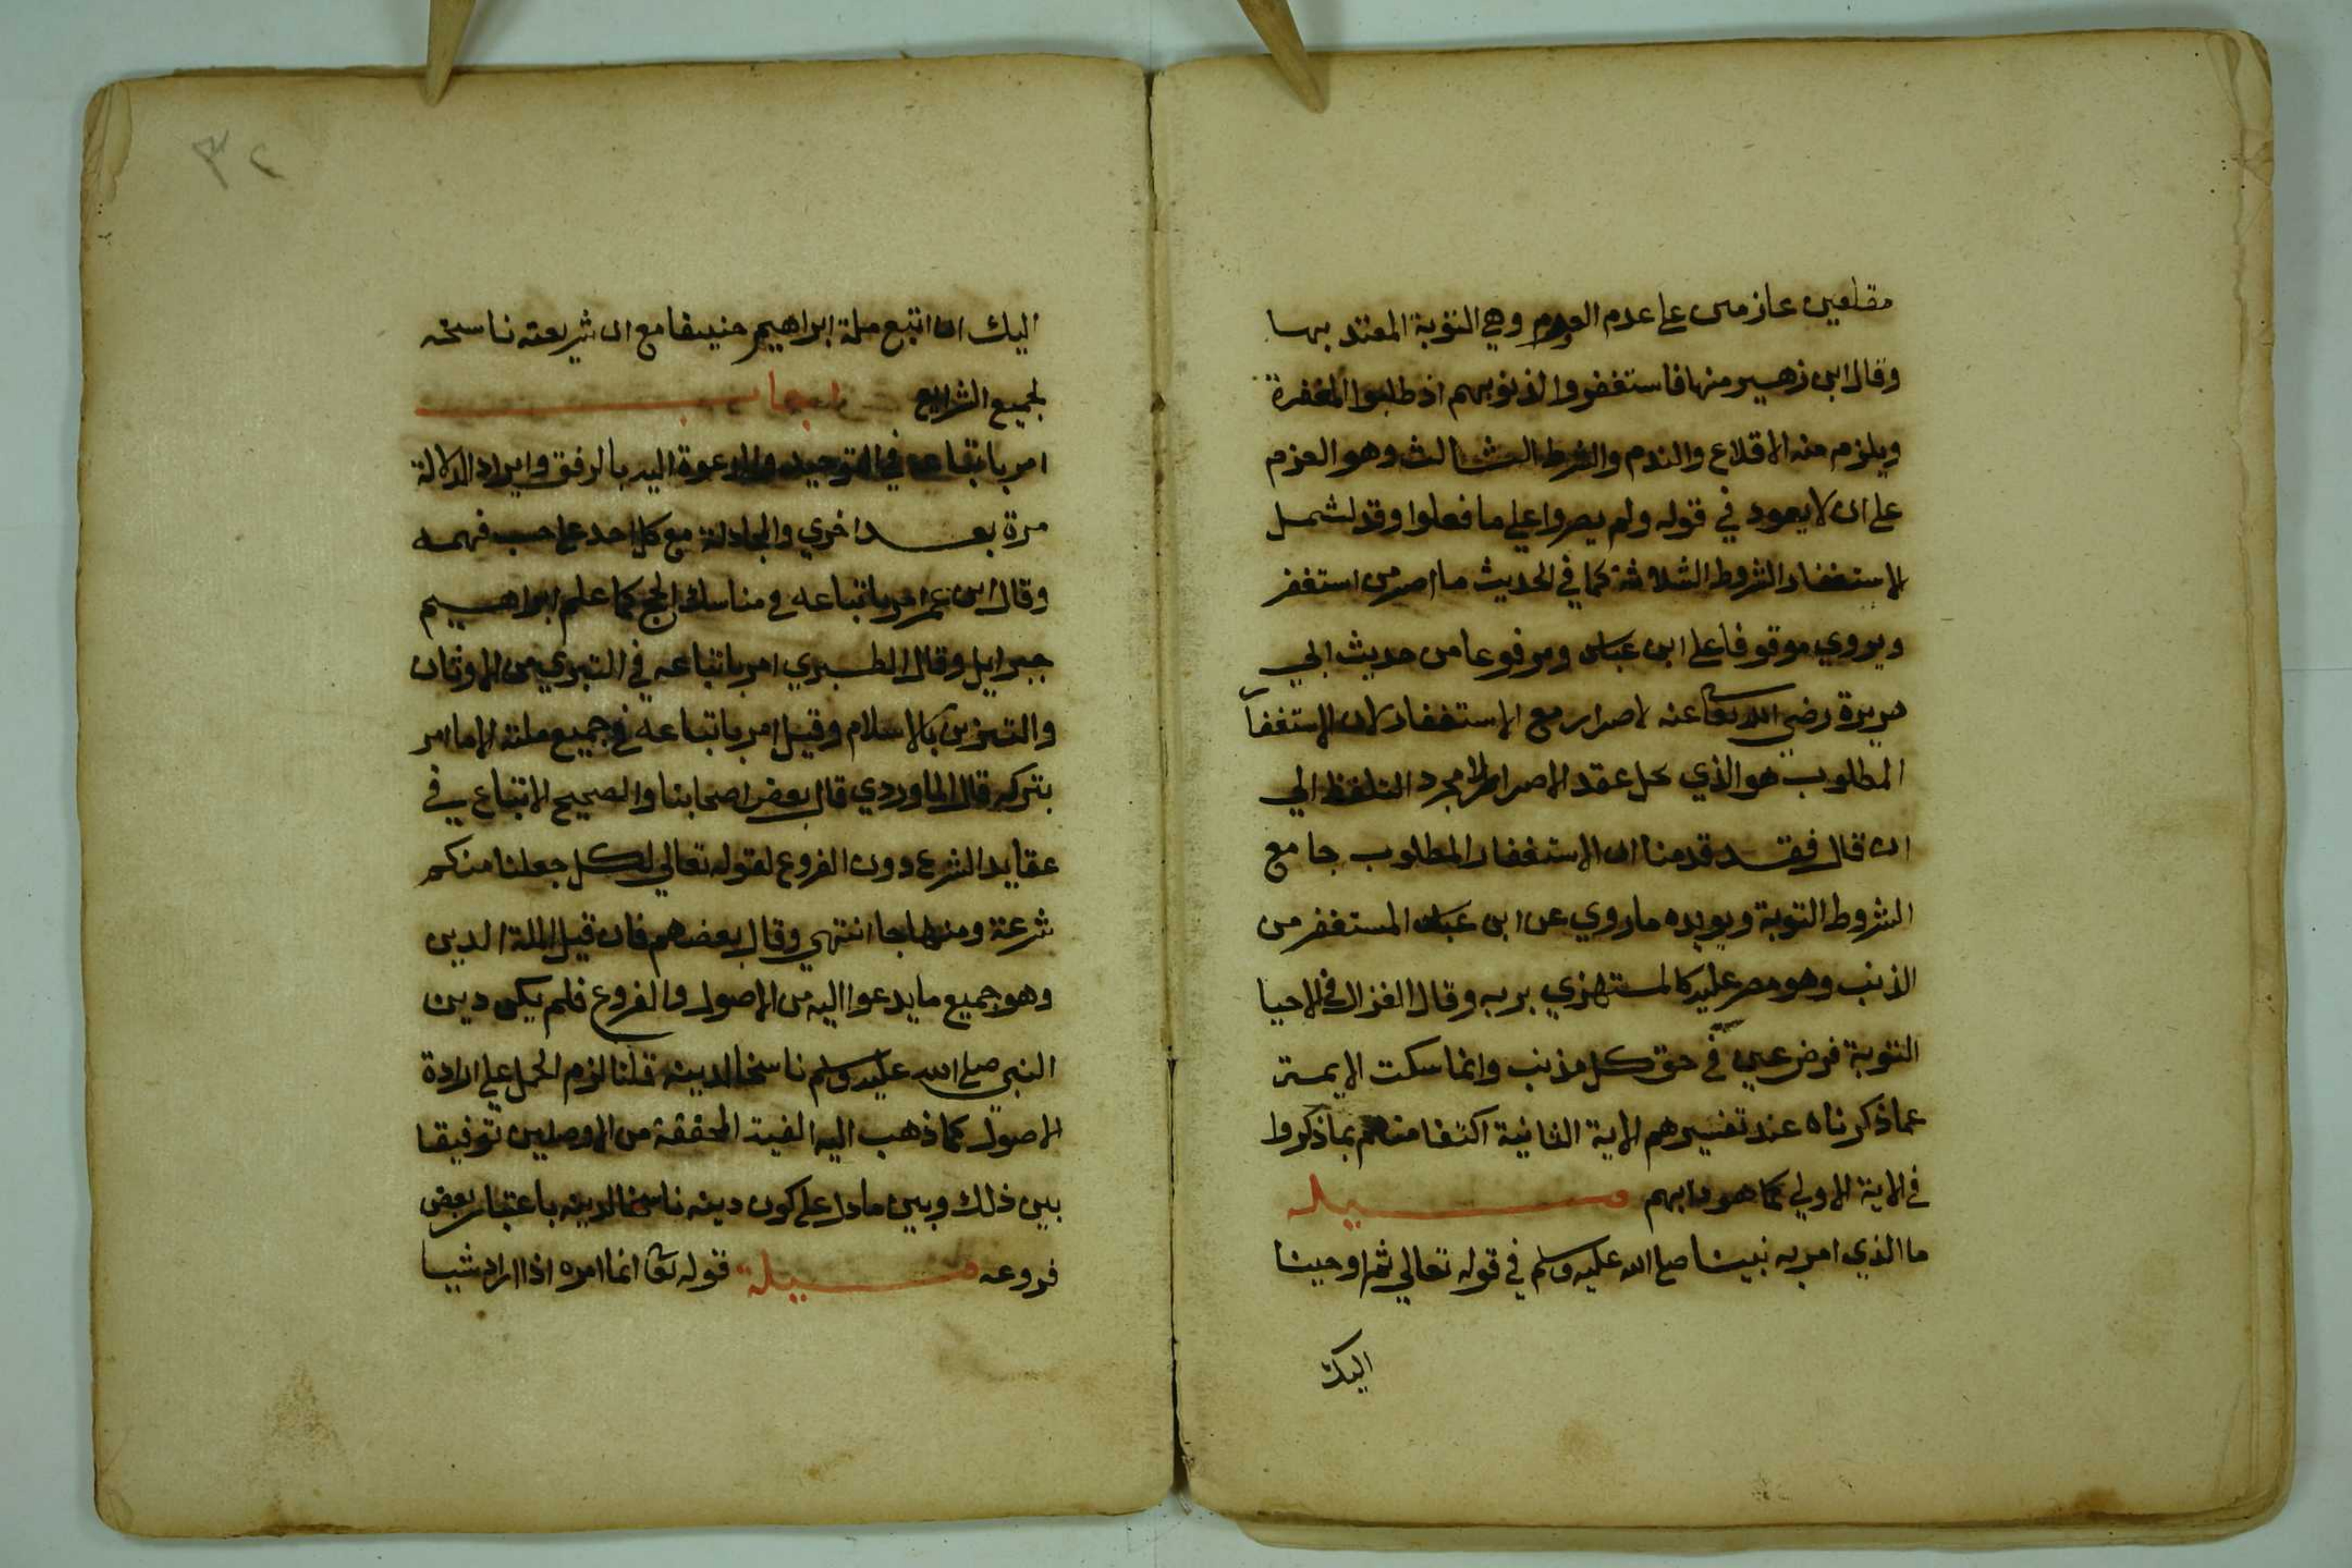 مقلعين عازمين على عدم العود وهي التوبة المعتد بها
وقال ابن زهير منها فاستغفروا لذنوبهم اذ طلبوا المغفرة
ويلزم منه الاقلاع والندم والشرط الثالث وهو العزم
على ان لا يعود في قوله ولم يصروا على ما فعلوا وقد لشمل
لاستغفار الشروط الثلاثة كما في الحديث ما اصر من استغفر
ويروي موقوفا على ابن عباس ومرفوعا من حديث ابي
هريرة رضي الله تعا عنه لاصرار مع الاستغفار لان الاستغفا
المطلوب هو الذي يحل عقد الاصرار لا مجرد التلفظ الي
ان قال فقد قدمنا ان الاستغفار المطلوب جامع
الشروط التوبة ويويده ما روي عن ابن عباس المستغفر من
الذنب وهو مصر عليه كالمستهزي بربه وقال الغزالي في الاحيا
التوبة فرض عين في حق كل مذنب وانما سكت الايمة
عما ذكرناه عند تفسيرهم الاية الثانية اكتفا منهم بما ذكروا
في الاية الاولي كما هو دابهم مسيلة
ما الذي امر به نبينا صلى الله عليه وسلم في قوله تعالي ثم اوحينا
اليك
٣٢
اليك ان اتبع ملة ابراهيم حنيفا مع ان شريعته ناسخه
لجميع الشرايع اجاب
امر باتباعه في التوحيد والدعوة اليه بالرفق وايراد الدلالة
مرة بعد اخري والمجادلة مع كل احد على حسب فهمه
وقال ابن عمر امر باتباعه في مناسك الحج كما علم ابراهيم
جبرايل وقال الطبري امر باتباعه في التبري من الاوثان
والتزين بالاسلام وقيل امر باتباعه في جميع ملته الا ما امر
بتركه قال الماوردي قال بعض اصحابنا والصحيح الاتباع في
عقايد الشرع دون الفروع لقوله تعالي لكل جعلنا منكم
شرعة ومنهاجا انتهي وقال بعضهم فان قيل الملة الدين
وهو جميع ما يدعوا اليه من الاصول والفروع فلم يكن دين
النبي صلى الله عليه وسلم ناسخا لدينه قلنا لزم الحمل على ارادة
الاصول كما ذهب اليه الفية المحققة من الاوصليين توفيقا
بين ذلك وبين ما دل على كون دينه ناسخا لدينه باعتبار بعض
فروعه مسيلة قوله تعا انما امره اذا اراد شيا